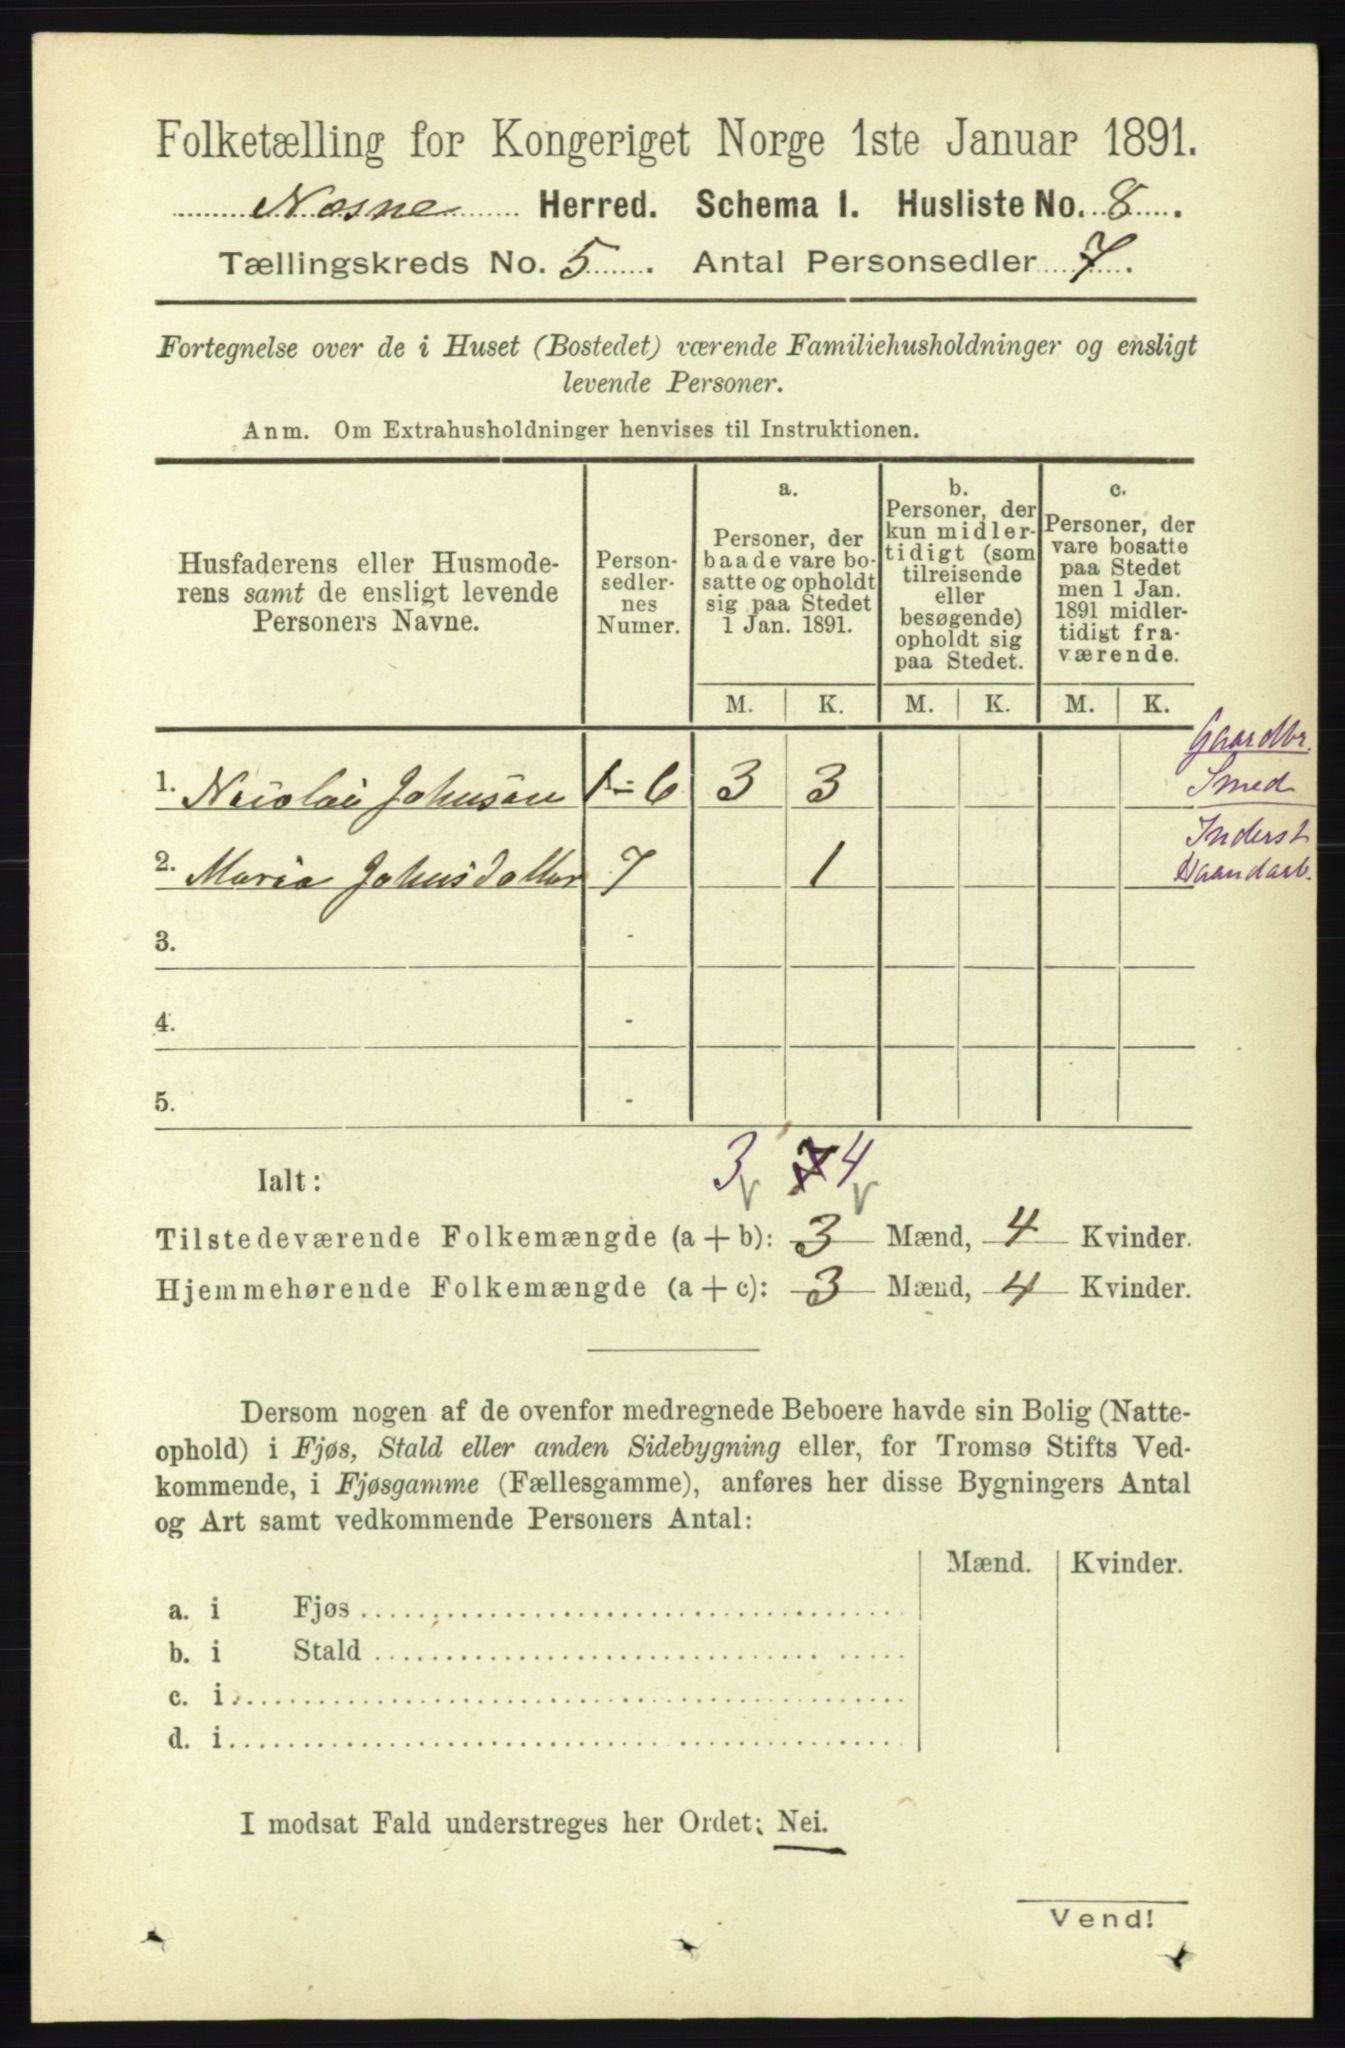 Folketælling for Kongeriget Norge 1ste Januar 1891.
Nesne Herred. Schema I. Husliste No. 8.
Tællingskreds No. 5. Antal Personsedler 7.
Fortegnelse over de i Huset (Bostedet) værende Familiehusholdninger og ensligt
levende Personer.
Anm. Om Extrahusholdninger henvises til Instruktionen.
Husfaderens eller Husmode-
rens samt de ensligt levende
Personers Navne.
Person-
sedler-
nes
Numer.
a.
Personer, der
baade vare bo-
satte og opholdt
sig paa Stedet
1 Jan. 1891.
b.
Personer, der
kun midler-
tidigt (som
tilreisende
eller
besøgende)
opholdt sig
paa Stedet.
c.
Personer, der
vare bosatte
paa Stedet
men 1 Jan.
1891 midler-
tidigt fra-
værende.
M. K. M. K. M. K.
1. Nicolai Johnsen 1-6 3 3 Gaardbr. Smed
2. Maria Johnsdatter 7 1 Inderst Haandarb.
3. -
4. -
5. -
3 7 4
Ialt:
Tilstedeværende Folkemængde (a + b): 3 Mænd, 4 Kvinder.
Hjemmehørende Folkemængde (a + c): 3 Mænd, 4 Kvinder.
Dersom nogen af de ovenfor medregnede Beboere havde sin Bolig (Natte-
ophold) i Fjøs, Stald eller anden Sidebygning eller, for Tromsø Stifts Ved-
kommende, i Fjøsgamme (Fællesgamme), anføres her disse Bygningers Antal
og Art samt vedkommende Personers Antal:
Mænd. Kvinder.
a. i Fjøs
b. i Stald
c. i
d. i
I modsat Fald understreges her Ordet: Nei.
Vend!